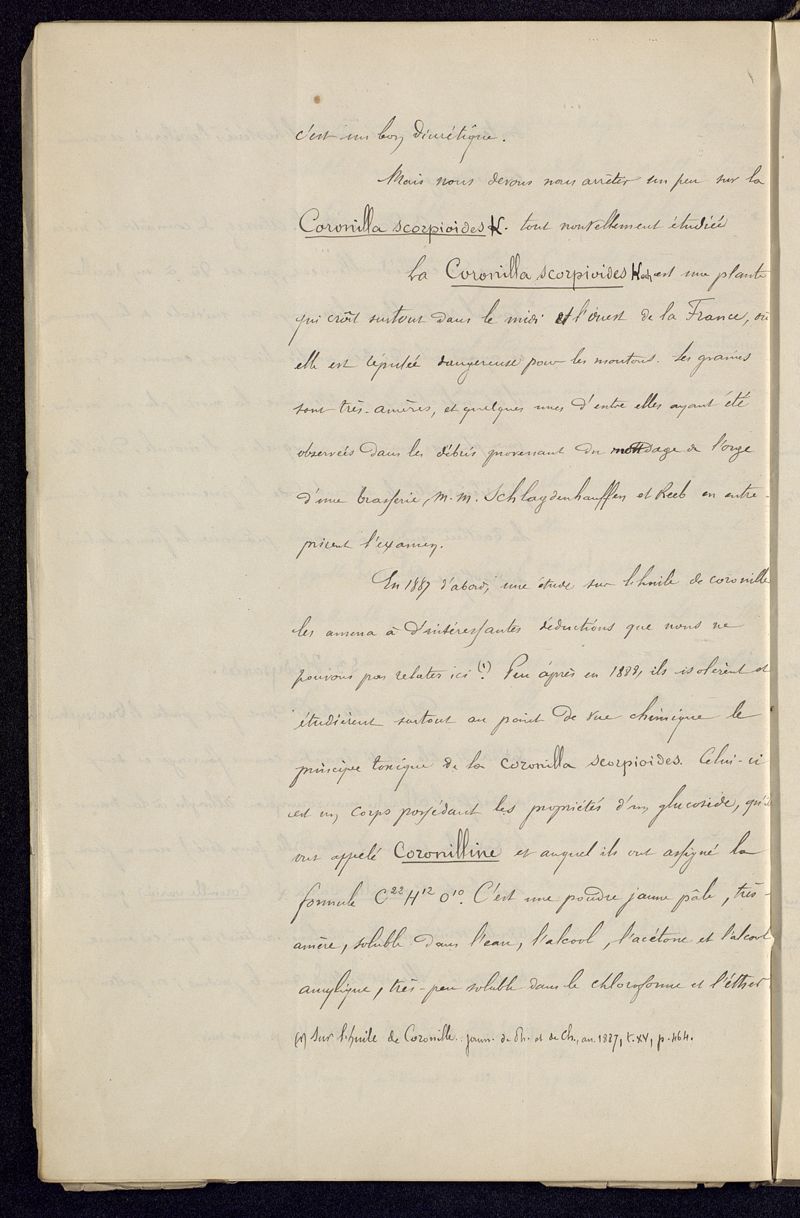 c'est un bon diurétique.
Mais nous devons nous arrêter un peu sur la
Coronilla scorpioides K. tout nouvellement étudiée
La Coronilla scorpioides Koch est une plante
qui croît surtout dans le midi et l'ouest de la France, où
elle est réputée dangereuse pour les moutons. Les graines
sont très-amères, et quelques unes d'entre elles ayant été
observées dans les débris provenant du mondage de l'orge
d'une brasserie, M.M. Schlagdenhauffen et Reeb en entre-
prirent l'examen.
En 1887 d'abord, une étude sur l'huile de coronille
les amena à d'intéressantes déductions que nous ne
pouvons pas relater ici (1). Peu après en 1888, ils isolèrent et
étudièrent surtout au point de vue chimique le
principe toxique de la coronilla scorpioides. Celui-ci
est un corps possédant les propriétés d'un glucoside, qu'ils
ont appelé Coronilline et auquel ils ont assigné la
formule C22 H12 O10. C'est une poudre jaune pâle, très-
amère, soluble dans l'eau, l'alcool, l'acétone et l'alcool
amylique, très-peu soluble dans le chloroforme et l'éther
(1) Sur l'huile de Coronille. Journ. de Ph. et de Ch., an. 1887, t. XV, p. 464.